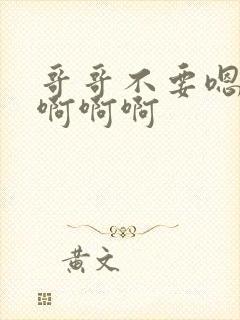 哥哥不要嗯
啊啊啊
黄文